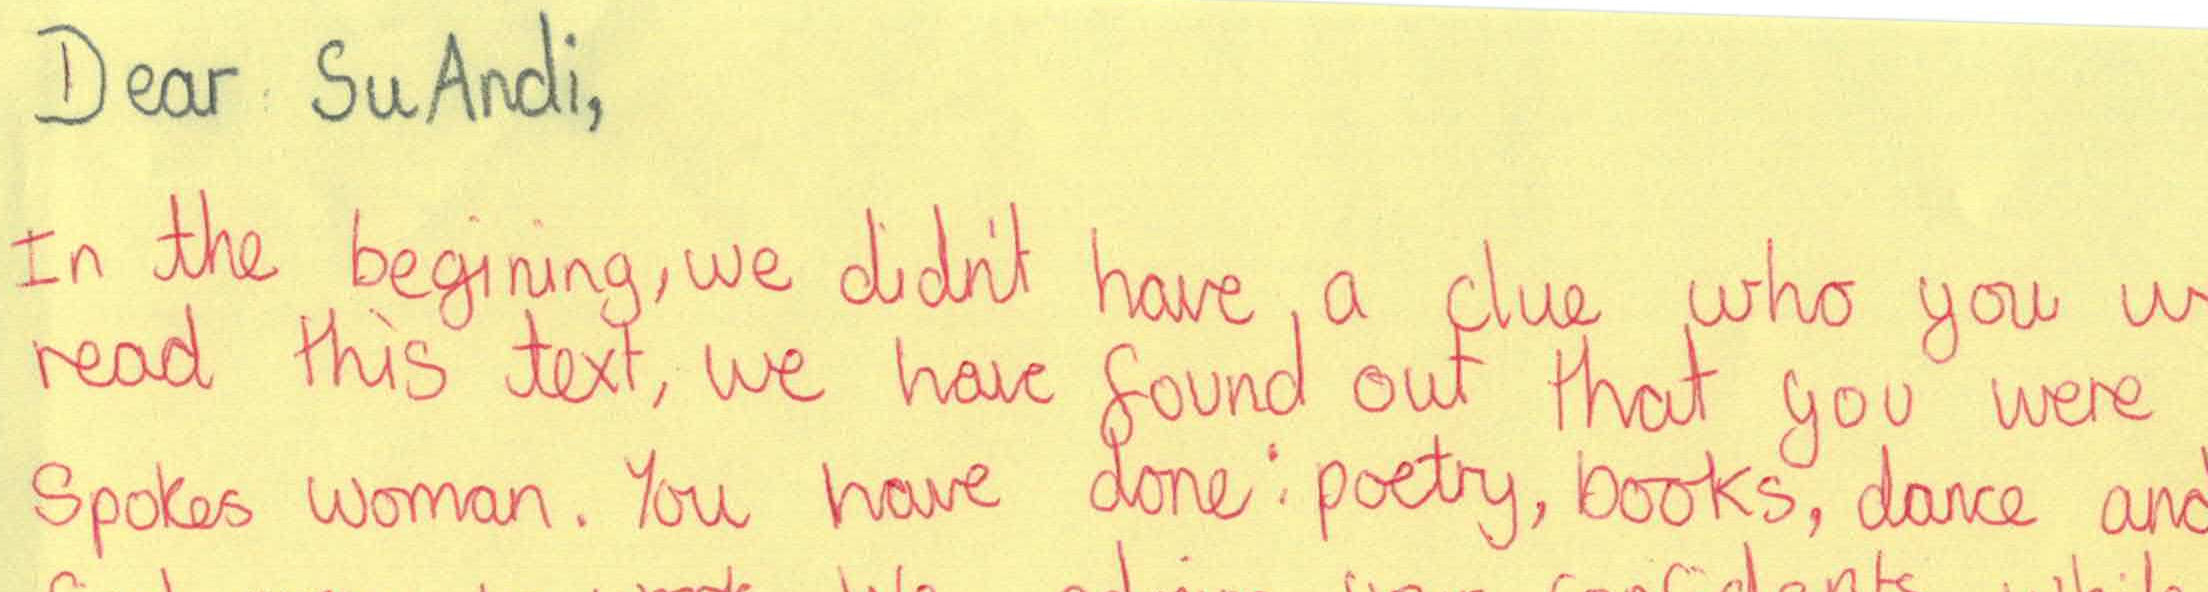 Dear SuAndi,
In the begining, we didn't have a clue who you
read this text, we have found out that you were
Spokes woman. You have done: poetry, books, dance and